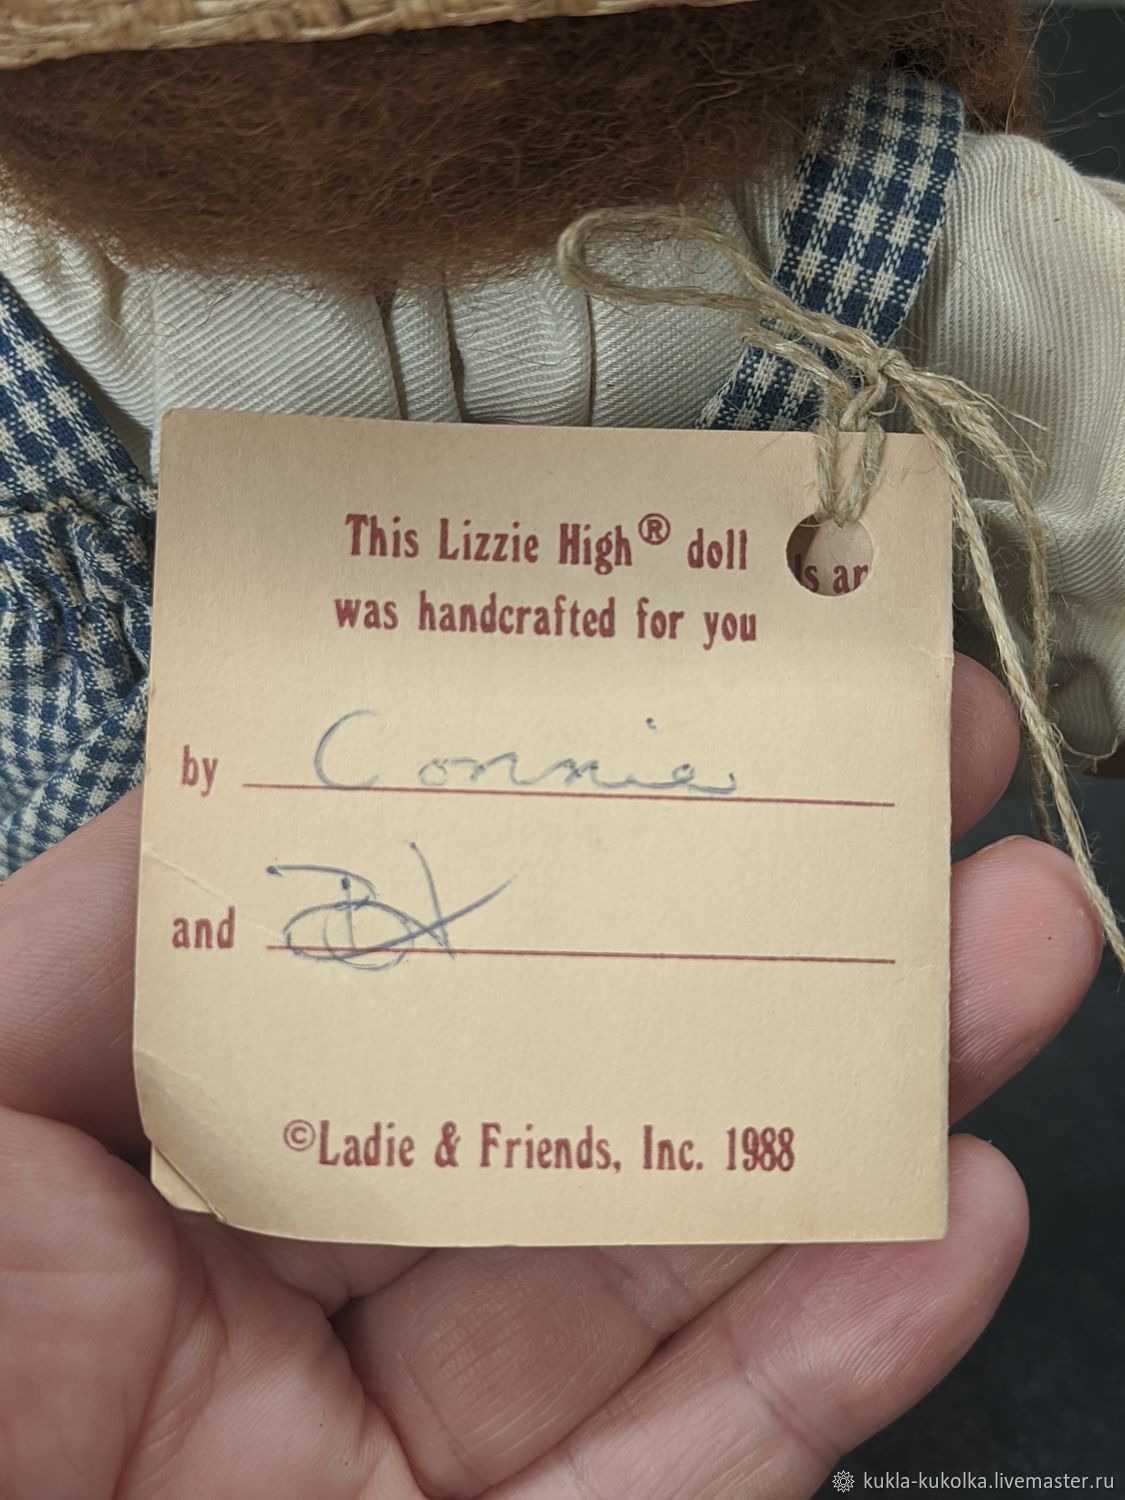 This Lizzie High® doll
ls ar
was handcrafted for you
by Connie
and
©Ladie & Friends, Inc. 1988
kukla-kukolka.livemaster.ru